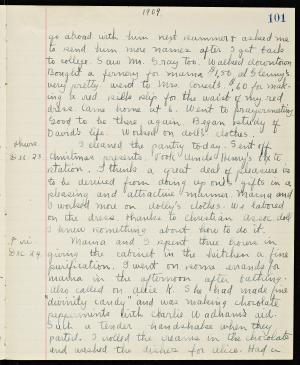 1909.
101
go abroad with him next summer & asked me
to send him more names after I get back
to college. Saw Mr. Gray too. Walked downtown
Bought a fernery for mama $1.50 at
very pretty went to Mrs. .60 for mak-
ing a red silk slip for the waist of my red
dress. Came home at 6. Went to prayermeeting
Good to be there again. Began study of
David's life. Worked on doll's clothes.
Thurs.
Dec. 23.
I cleaned the pantry today. Sent off
Christmas presents. Took Uncle Henry's to
station. I think a great deal of pleasure is
to be derived from doing up one's gifts in a
pleasing and attractive manner. Mama and
I worked more on dolly's clothes. We
on the dress. Thanks to Christian Assoc. doll
I knew something about how to do it.
Fri.
Dec 24.
Mama and I spent three hours in
giving the cabinet in the kitchen a fine
purification. I went on some errands for
mama in the afternoon after bathing.
Also called on Alice H. She had made fine
"divinity candy" and was making chocolate
peppermints with Charlie Wadhams aid.
Such a tender handshake when they
parted. I rolled the creams in the chocolate
and washed the dishes for Alice. Had a